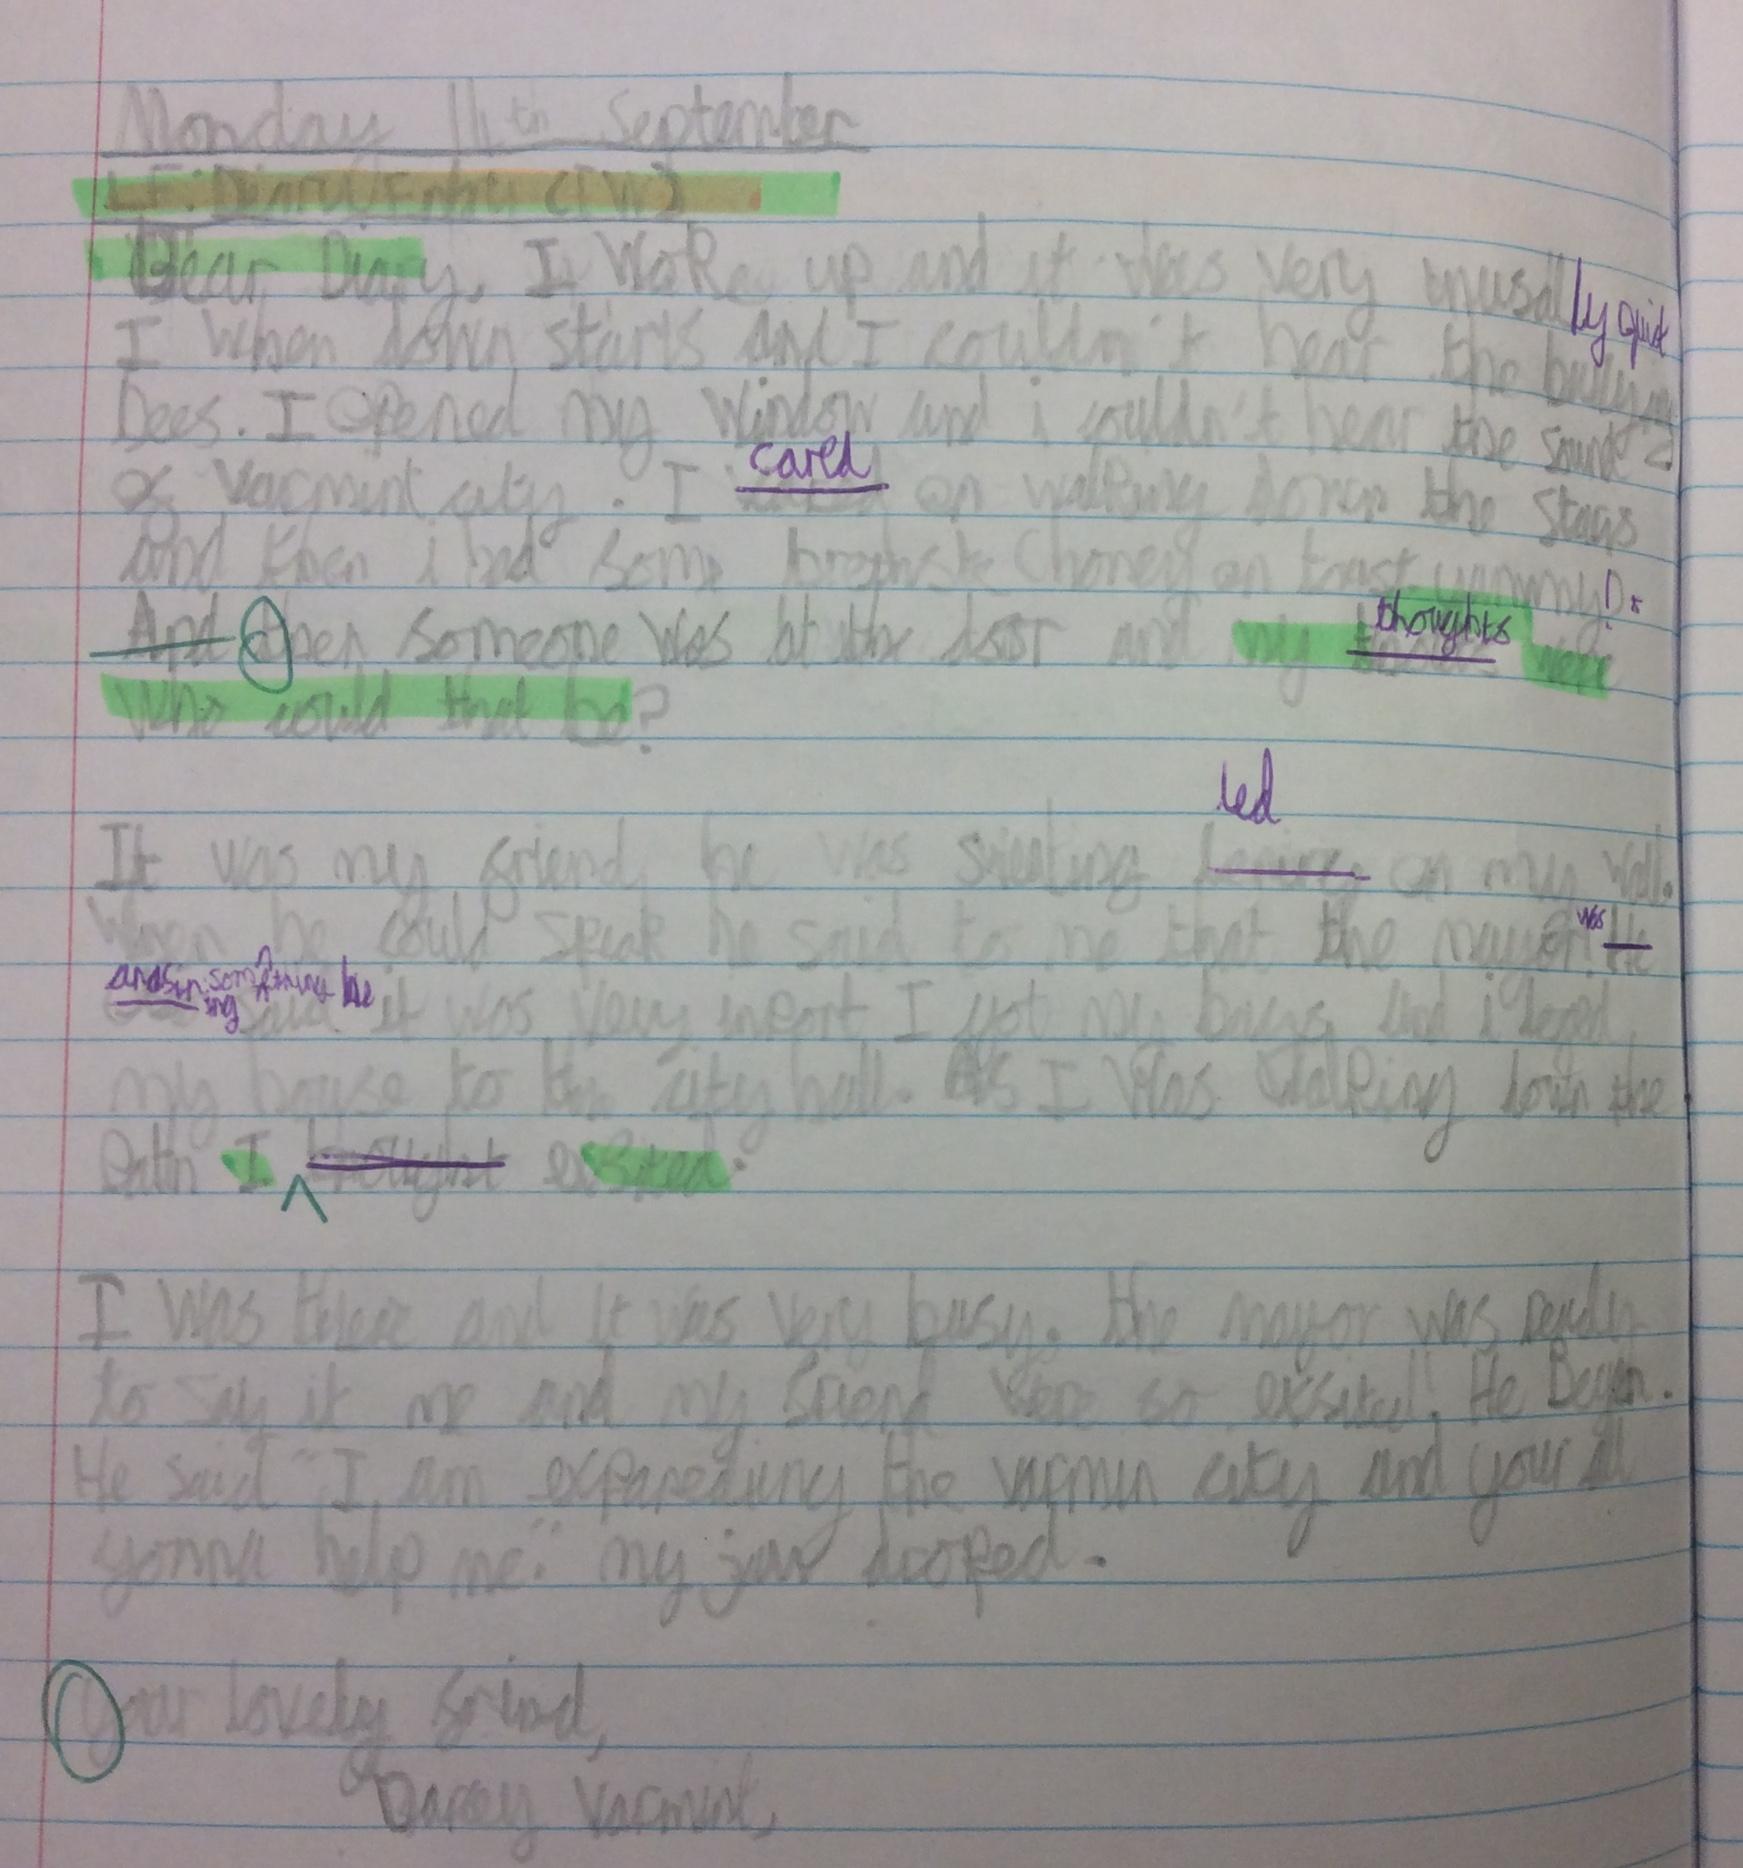 Monday 11th September
LF: Diary Entry (IW)
Dear Diary, I woke up and it was very unusally quiet
I when down stairs and I couldn't hear the
Bees. I opened my window and i couldn't hear the sound
of varmint city. I cared on walking down the stars
And then i had some (honey on toast yummy!).
And then someone was at the door and my thoughts were
Who could that be?
led
It was my friend, he was on my wall.
When he could speak he said to me that the mayor was He
something he
said it was very inport I got my bags and i
my house to the city hall. As I was walking down the
Path I thought exsited.
I was there and it was very busy. the mayor was ready
to say it me and my friend were so exsited! He Began.
He said "I am the varmin city and your all
gonna help me." my jaw droped.
Your lovely frind,
Darcy Varmint,